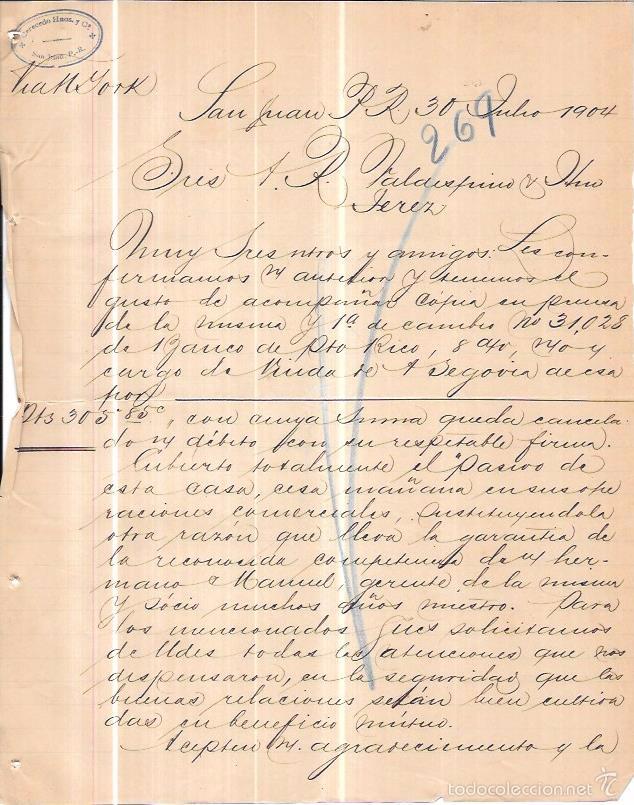 Cerecedo Hnos. y Cª.
San Juan, P.-R.
Via N York
San Juan P. R. 30 Julio 1904
269
Sres A. R. Valdespino & Hno
Jerez
Muy Sres ntros y amigos: Les con-
firmamos n/ anterior y tenemos el
gusto de acompañar copia en prensa
de la misma y 1ª de cambio No 31,028
de Banco de Pto Rico, 8 d/v, n/o y
cargo de Viuda de A Segovia de esa
por
Pts 305"85c, con cuya suma queda cancela-
do n/ débito con su respetable firma.
Cubierto totalmente el pasivo de
esta casa, cesa mañana en sus ope
raciones comerciales, sustituyendola
otra razón que lleva la garantia de
la reconocida competencia de n/ her-
mano Manuel, gerente de la misma
y sócio muchos años nuestro. Para
los mencionados Sres solicitamos
de Udes todas las atenciones que nos
dispensaron, en la seguridad que las
buenas relaciones serán bien cultiva
das en beneficio mútuo.
Acepten n/ agradecimiento y la
todocoleccion.net